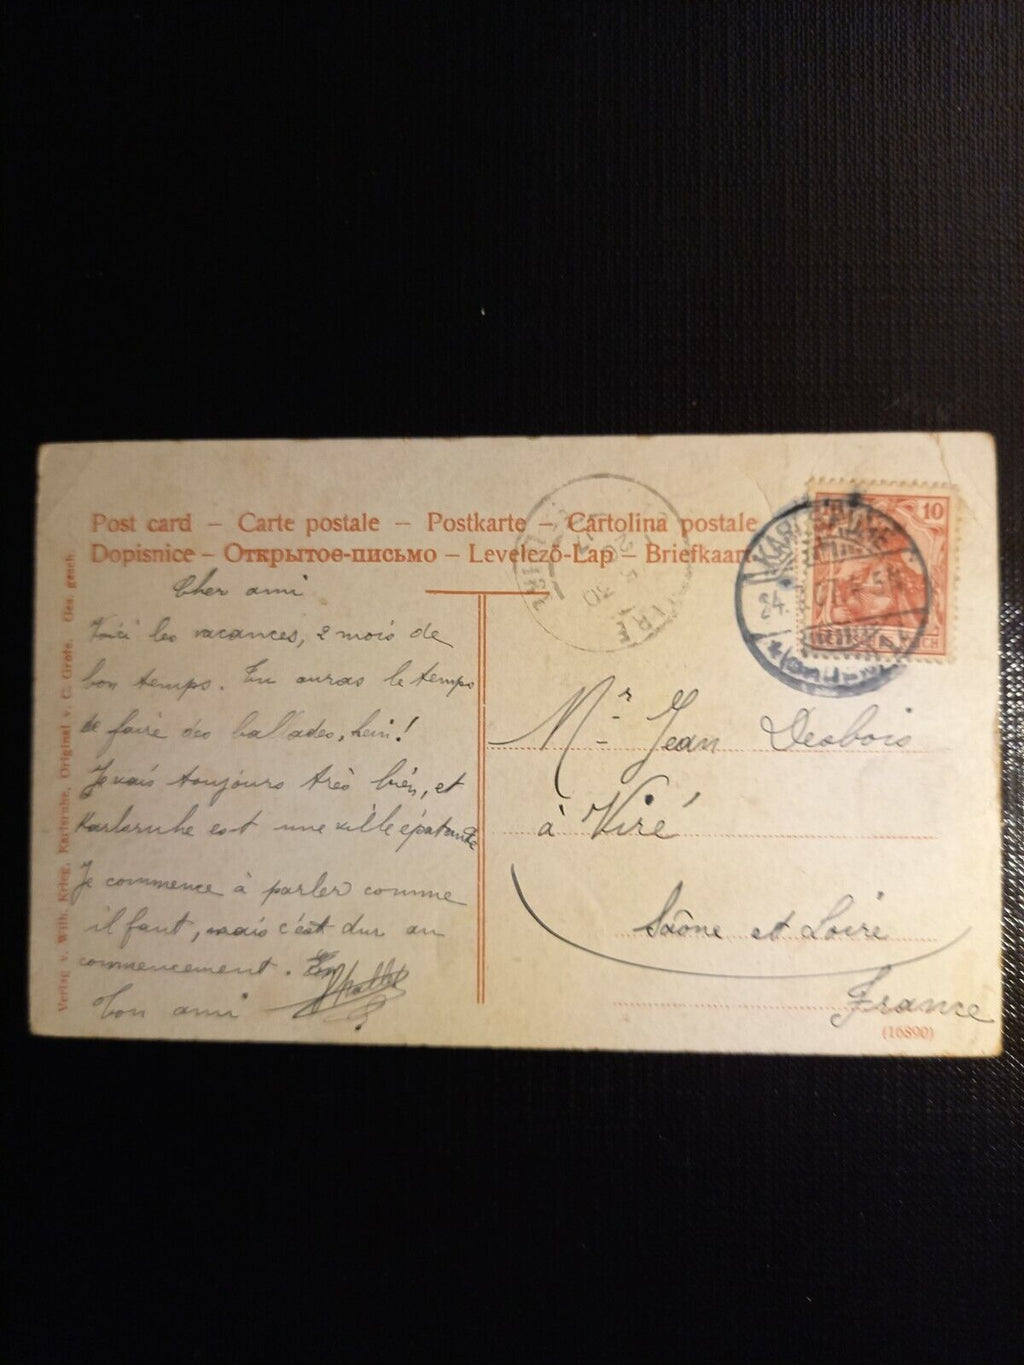 Post card – Carte postale – Postkarte – Cartolina postale
Dopisnice – Открытое-письмо – Levelező-Lap – Briefkaart
Cher ami
Voici les vacances, 2 mois de
bon temps. Tu auras le temps
de faire des ballades, hein!
Je vais toujours très bien, et
Karlsruhe est une ville épatante
Je commence à parler comme
il faut, mais c'est dur au
commencement. Ton
bon ami
Verlag v. Wilh. Krieg, Karlsruhe, Original v. C. Grote. Ges. gesch.
10
REICH
KARLSRUHE
24.
5-6N
(BADEN)
VIRÉ
Mr Jean Desbois
à Viré
Saône et Loire
France
(16890)